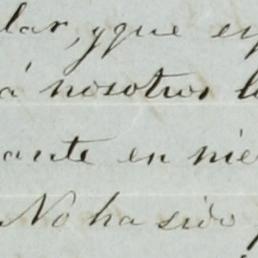 lar, y que es
á nosotros l
ante en nie
No ha sido